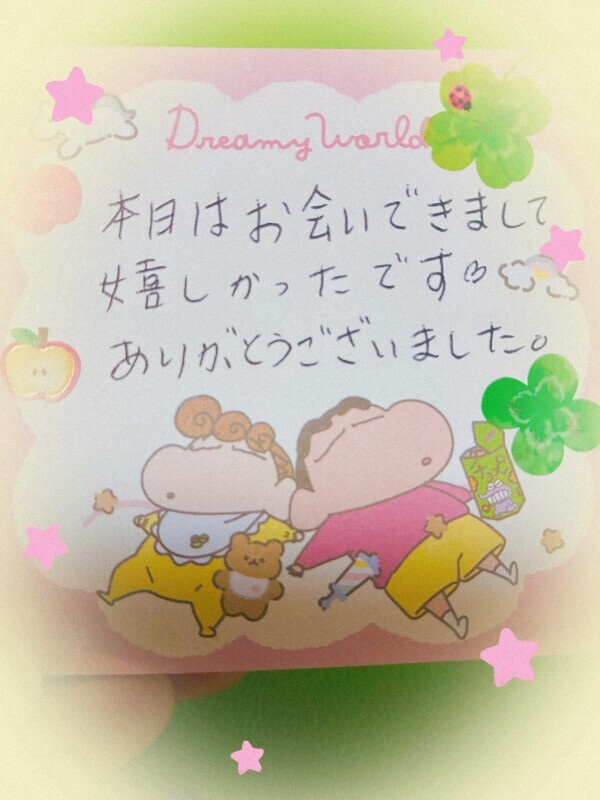 Dreamy World
本日はお会いできまして
嬉しかったです♡
ありがとうございました。
チョコビ